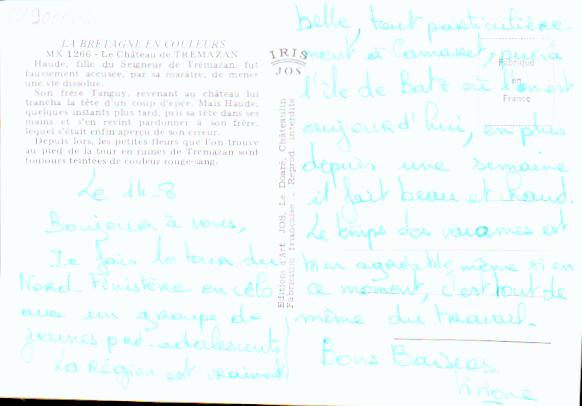 LA BRETAGNE EN COULEURS
MX 1266 - Le Château de TREMAZAN
Haude, fille du Seigneur de Trémazan, fut
faussement accusée, par sa marâtre, de mener
une vie dissolue.
Son frère Tanguy, revenant au château lui
trancha la tête d'un coup d'épée. Mais Haude,
quelques instants plus tard, puis sa tête dans ses
mains et s'en revint pardonner à son frère,
lequel s'était enfin aperçu de son erreur.
Depuis lors, les petites fleurs que l'on trouve
au pied de la tour en ruines de Trémazan sont
toujours teintées de couleur rouge-sang.
Le 14-8
Bonjour à vous,
Je fais le tour du
Nord-Finistère en vélo
avec un groupe de
jeunes pré-adolescents
La Région est vraiment
IRIS
JOS
Editions d'Art JOS, Le Doaré, Châteaulin
Fabrication française - Reprod. interdite
Fabriqué
en
France
belle, tout particulière-
ment à Camaret, puis à
l'île de Batz où l'on est
aujourd'hui, en plus
depuis une semaine
il fait beau et chaud.
Le temps des vacances est
bien agréable, même si en
ce moment, c'est tout de
même du travail.
Bons Baisers